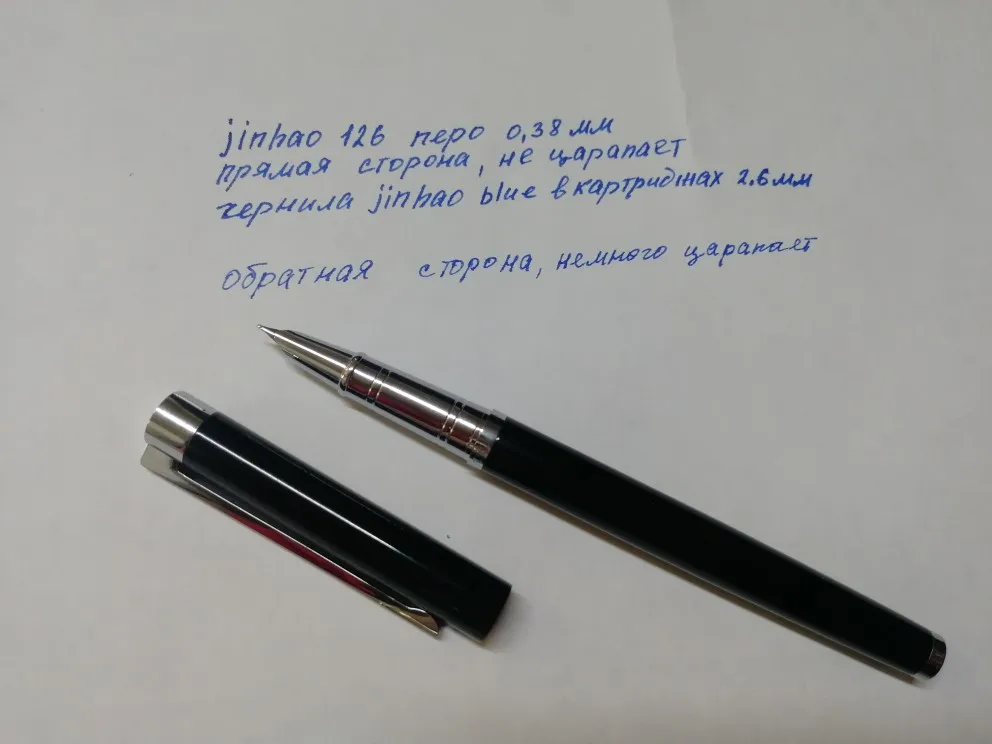 jinhao 126 перо 0,38 мм
прямая сторона, не царапает
чернила jinhao blue в картриджах 2.6 мм
обратная сторона, немного царапает